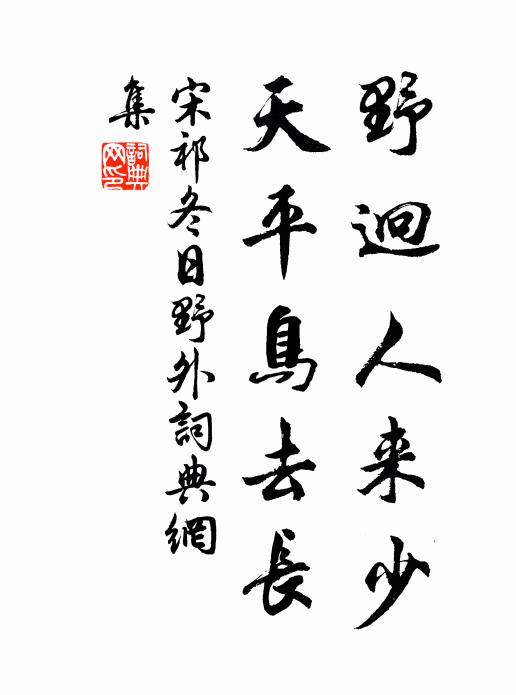 野迥人来少
天平鳥去長
宋祁冬日野外詞典網
集
詞典網印